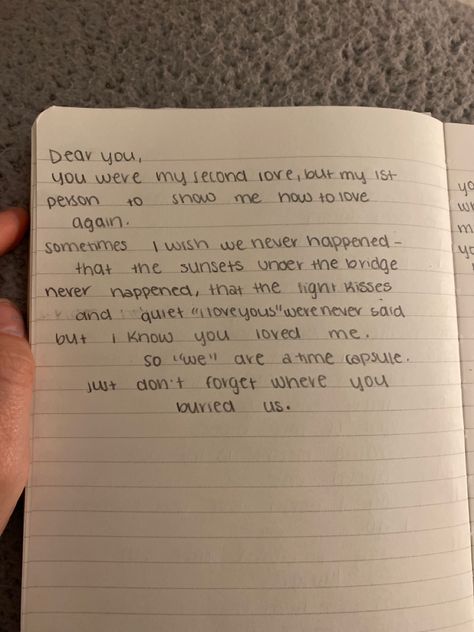 Dear you,
you were my second love, but my 1st
person to show me how to love
again.
sometimes I wish we never happened -
that the sunsets under the bridge
never happened, that the light kisses
and quiet "i love yous" were never said
but i know you loved me.
so "we" are a time capsule.
just don't forget where you
buried us.
yo
wh
m
yo